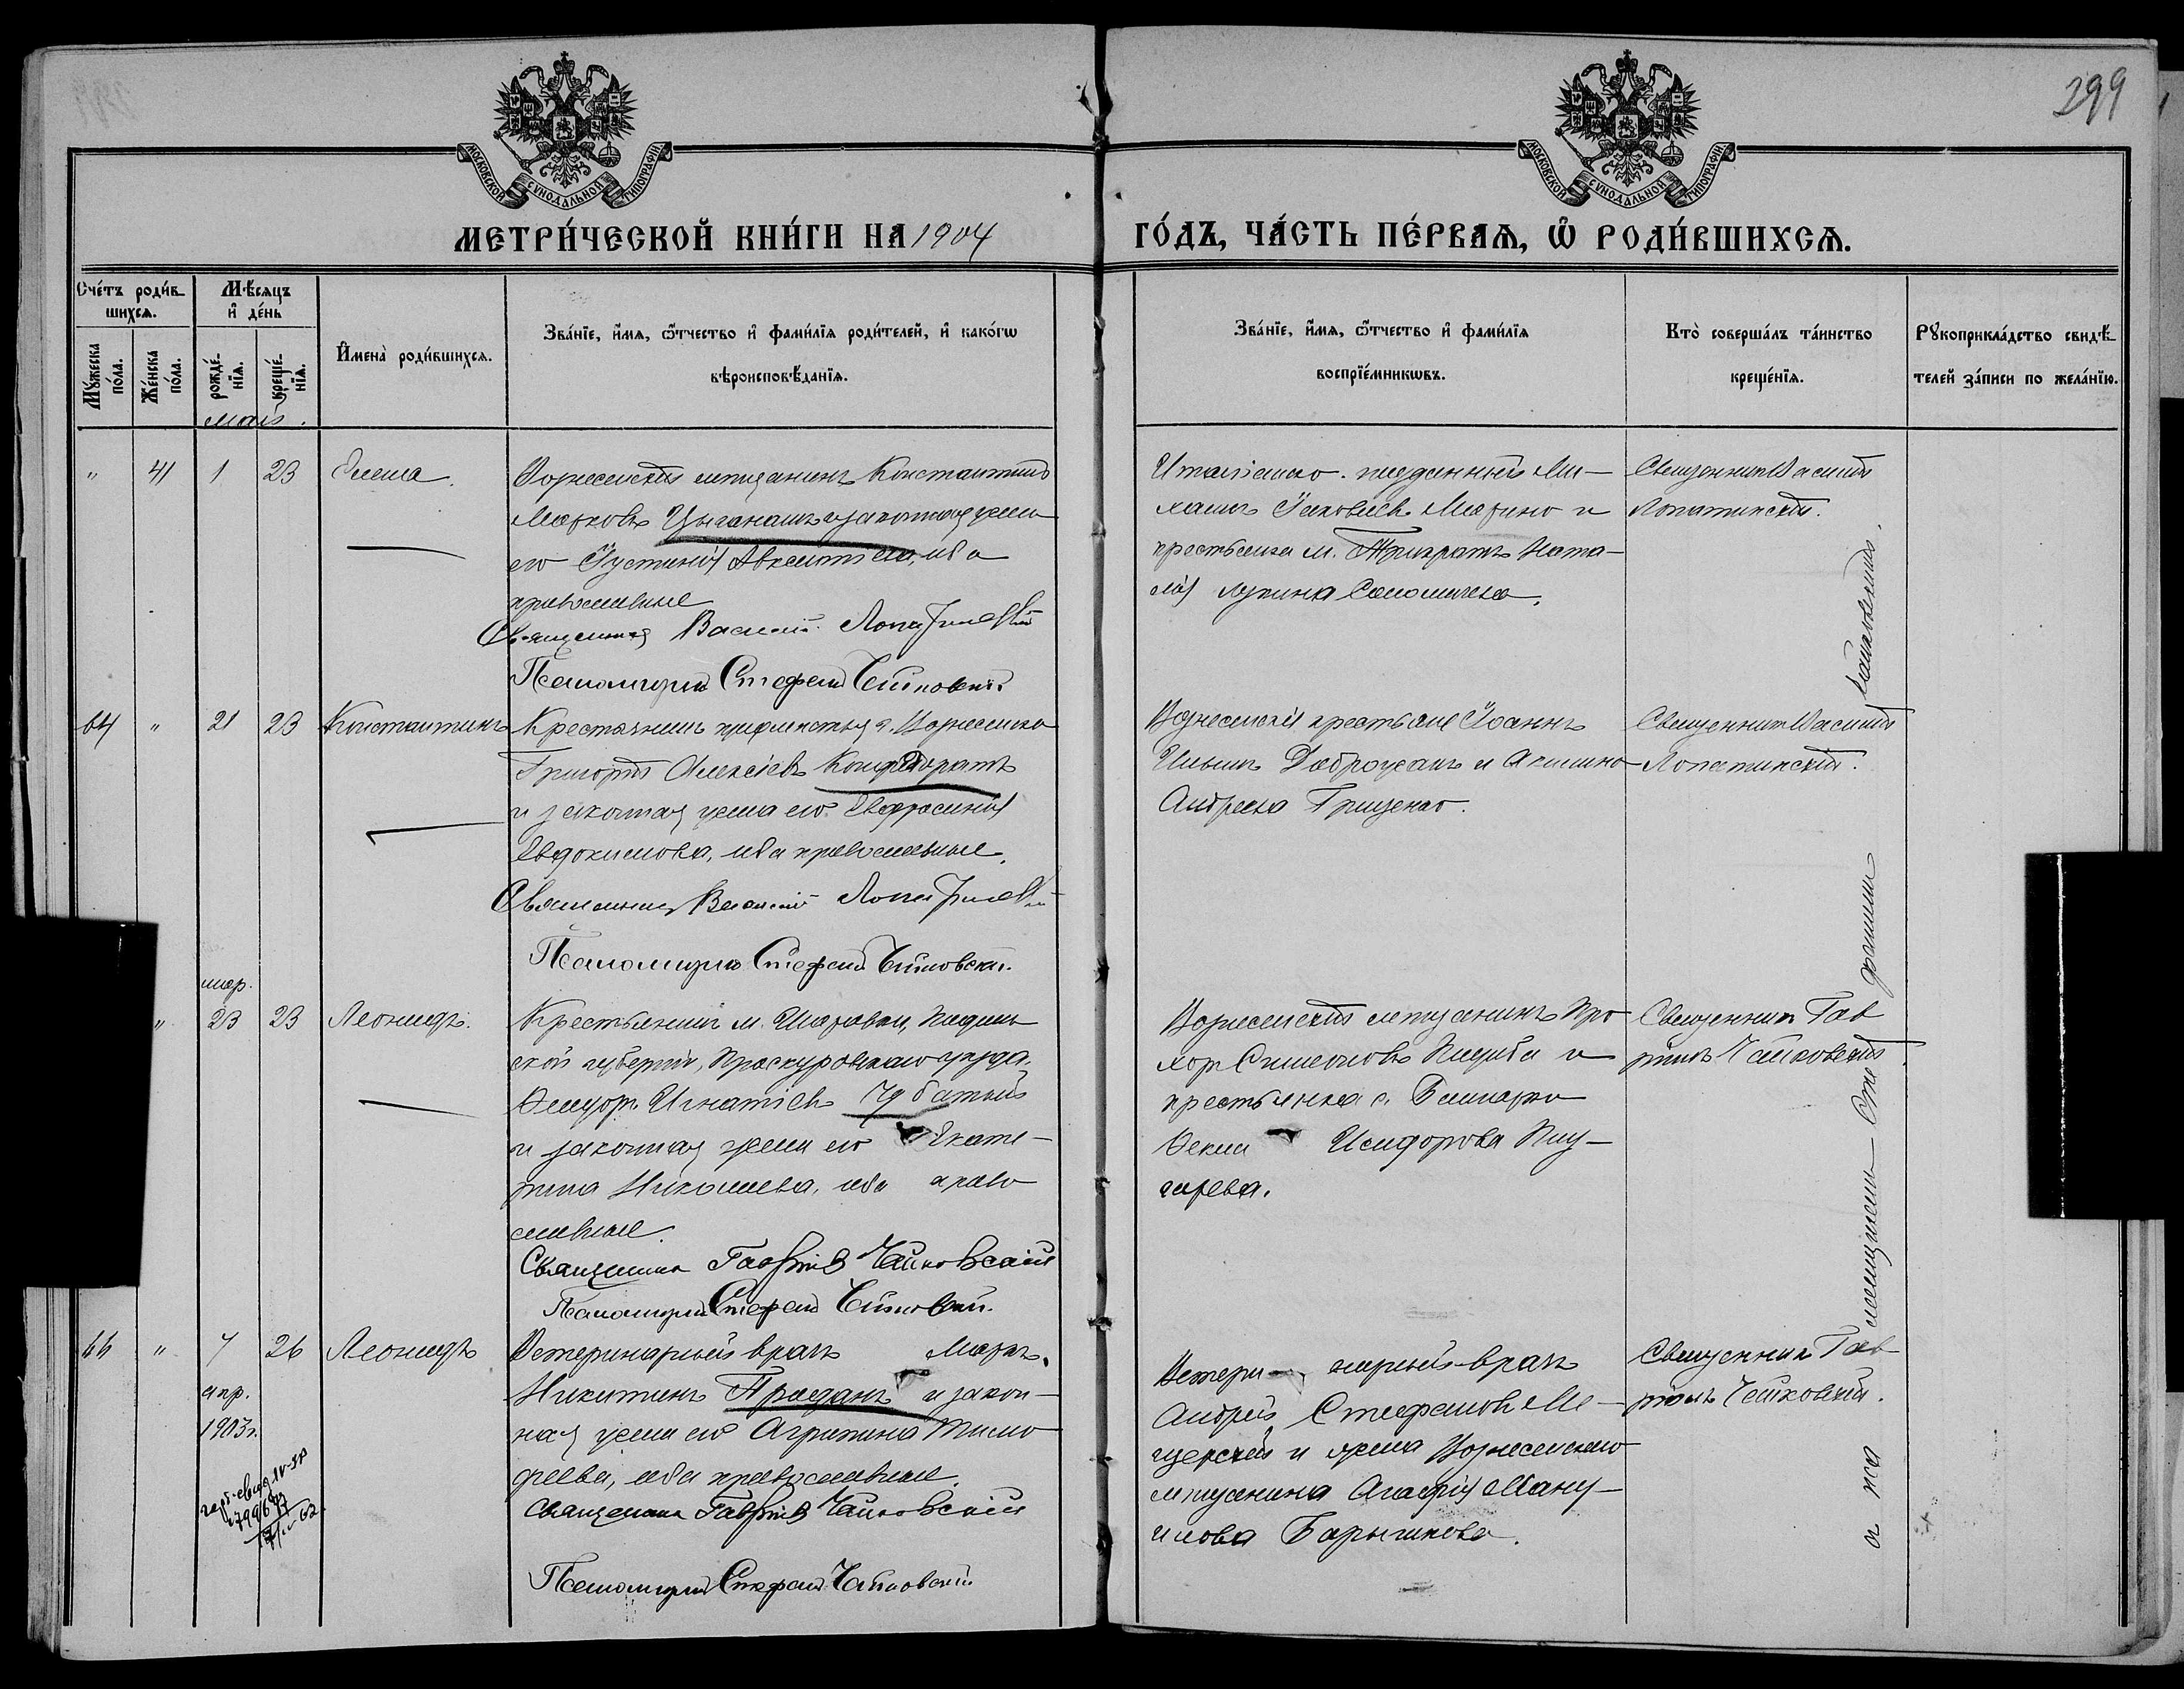 299
МОСКОВСКОЙ СУНОДАЛЬНОЙ ТИПОГРАФІИ
МОСКОВСКОЙ СУНОДАЛЬНОЙ ТИПОГРАФІИ
МЕТРИ́ЧЕСКОЙ КНИ́ГИ НА 1904
ГО́ДЪ, ЧА́СТЬ ПЕ́РВАѦ, Ѡ РОДИ́ВШИХСѦ.
Сче́тъ роди́в-
шихсѧ.
Мꙋ́жеска
по́ла.
Же́нска
по́ла.
Мѣ́сѧцъ
и҆ де́нь
рожде́-
нїѧ.
креще́-
нїѧ.
И҆мена̀ роди́вшихсѧ.
Зва́нїе, и҆́мѧ, ѻ҆́тчество и҆ фами́лїѧ роди́телей, и҆ како́гѡ
вѣроисповѣ́данїѧ.
Зва́нїе, и҆́мѧ, ѻ҆́тчество и҆ фами́лїѧ
воспрїе́мникѡвъ.
Кто̀ соверша́лъ та́инство
креще́нїѧ.
Рꙋкоприкла́дство свидѣ́-
телей за́писи по жела́нїю.
маія.
" 41 1 23 Елена.
Вознесенскій мѣщанинъ Константинъ
Марковъ Цыганашъ и законная жена
его Іустинія Авксентіева, оба
православные
Священникъ Василій Лопатинскій
Псаломщикъ Стефанъ Чайковскій
Италіанско-подданный Ми-
хаилъ Яковлевъ Марино и
крестьянка м. Тригратъ Ната-
лія Лукина Соломичева.
Священникъ Василій
Лопатинскій.
64 " 21 23 Константинъ
Крестьянинъ предмѣстья г. Вознесенска
Григорій Алексіевъ Кондратъ
и законная жена его Евфросинія
Евдокимова, оба православные.
Священникъ Василій Лопатинскій
Псаломщикъ Стефанъ Чайковскій.
Вознесенскія крестьяне Іоаннъ
Ильинъ Доброжанъ и Акилина
Андреева Гриценко.
Священникъ Василій
Лопатинскій.
мар.
" 23 23 Леонидъ.
Крестьянинъ м. Шаровки, Подоль-
ской губерніи, Проскуровскаго уѣзда
Ѳеодоръ Игнатіевъ Чубатый
и законная жена его Екате-
рина Николаева, оба право-
славные.
Священникъ Гавріилъ Чайковскій
Псаломщикъ Стефанъ Чайковскій.
Вознесенскій мѣщанинъ Про-
хоръ Симеоновъ и
крестьянка с.
Ѳекла Исидорова
Священникъ Гав-
ріилъ Чайковскій.
66 " 7 26 Леонидъ
апр.
1903г.
Ветеринарный врачъ
Никитинъ Проданъ и закон-
ная жена его Агрипина Тимо-
феева, оба православные.
Священникъ Гавріилъ Чайковскій
Псаломщикъ Стефанъ Чайковскій
Ветери-нарный врачъ
Андрей Стефановъ Ме-
щерскій и жена Вознесенскаго
мѣщанина Агафія Ману-
илова Барышкова.
Священникъ Гав-
ріилъ Чайковскій.